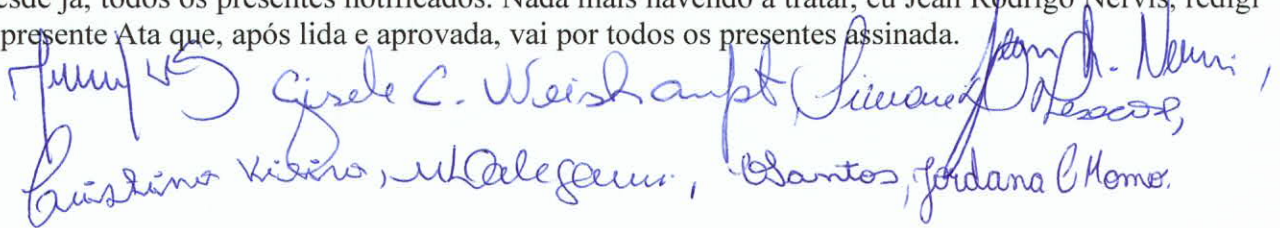 desde já, todos os presentes notificados. Nada mais havendo a tratar, eu Jean Rodrigo Nervis, redigi
presente Ata que, após lida e aprovada, vai por todos os presentes assinada.
Jean R. Nervis,
Gisele C. Weishaupt, Simone
Cristina, Santos, Jordana C Momo.